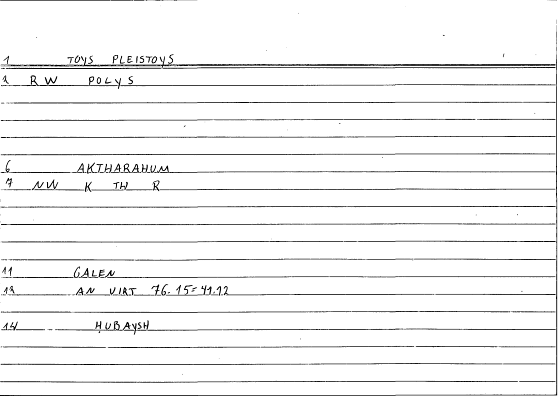 1 TOYS PLEISTOYS
2 RW POLYS
6 AKTHARAHUM
7 NW K TH R
11 GALEN
13 AN VIRT 76.15=41.12
14 HUBAYSH